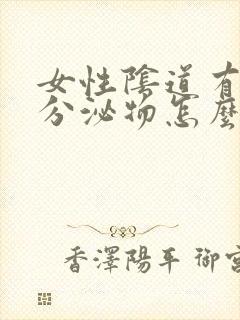 女性陰道有
分泌物怎麼
香澤陽平 御宮